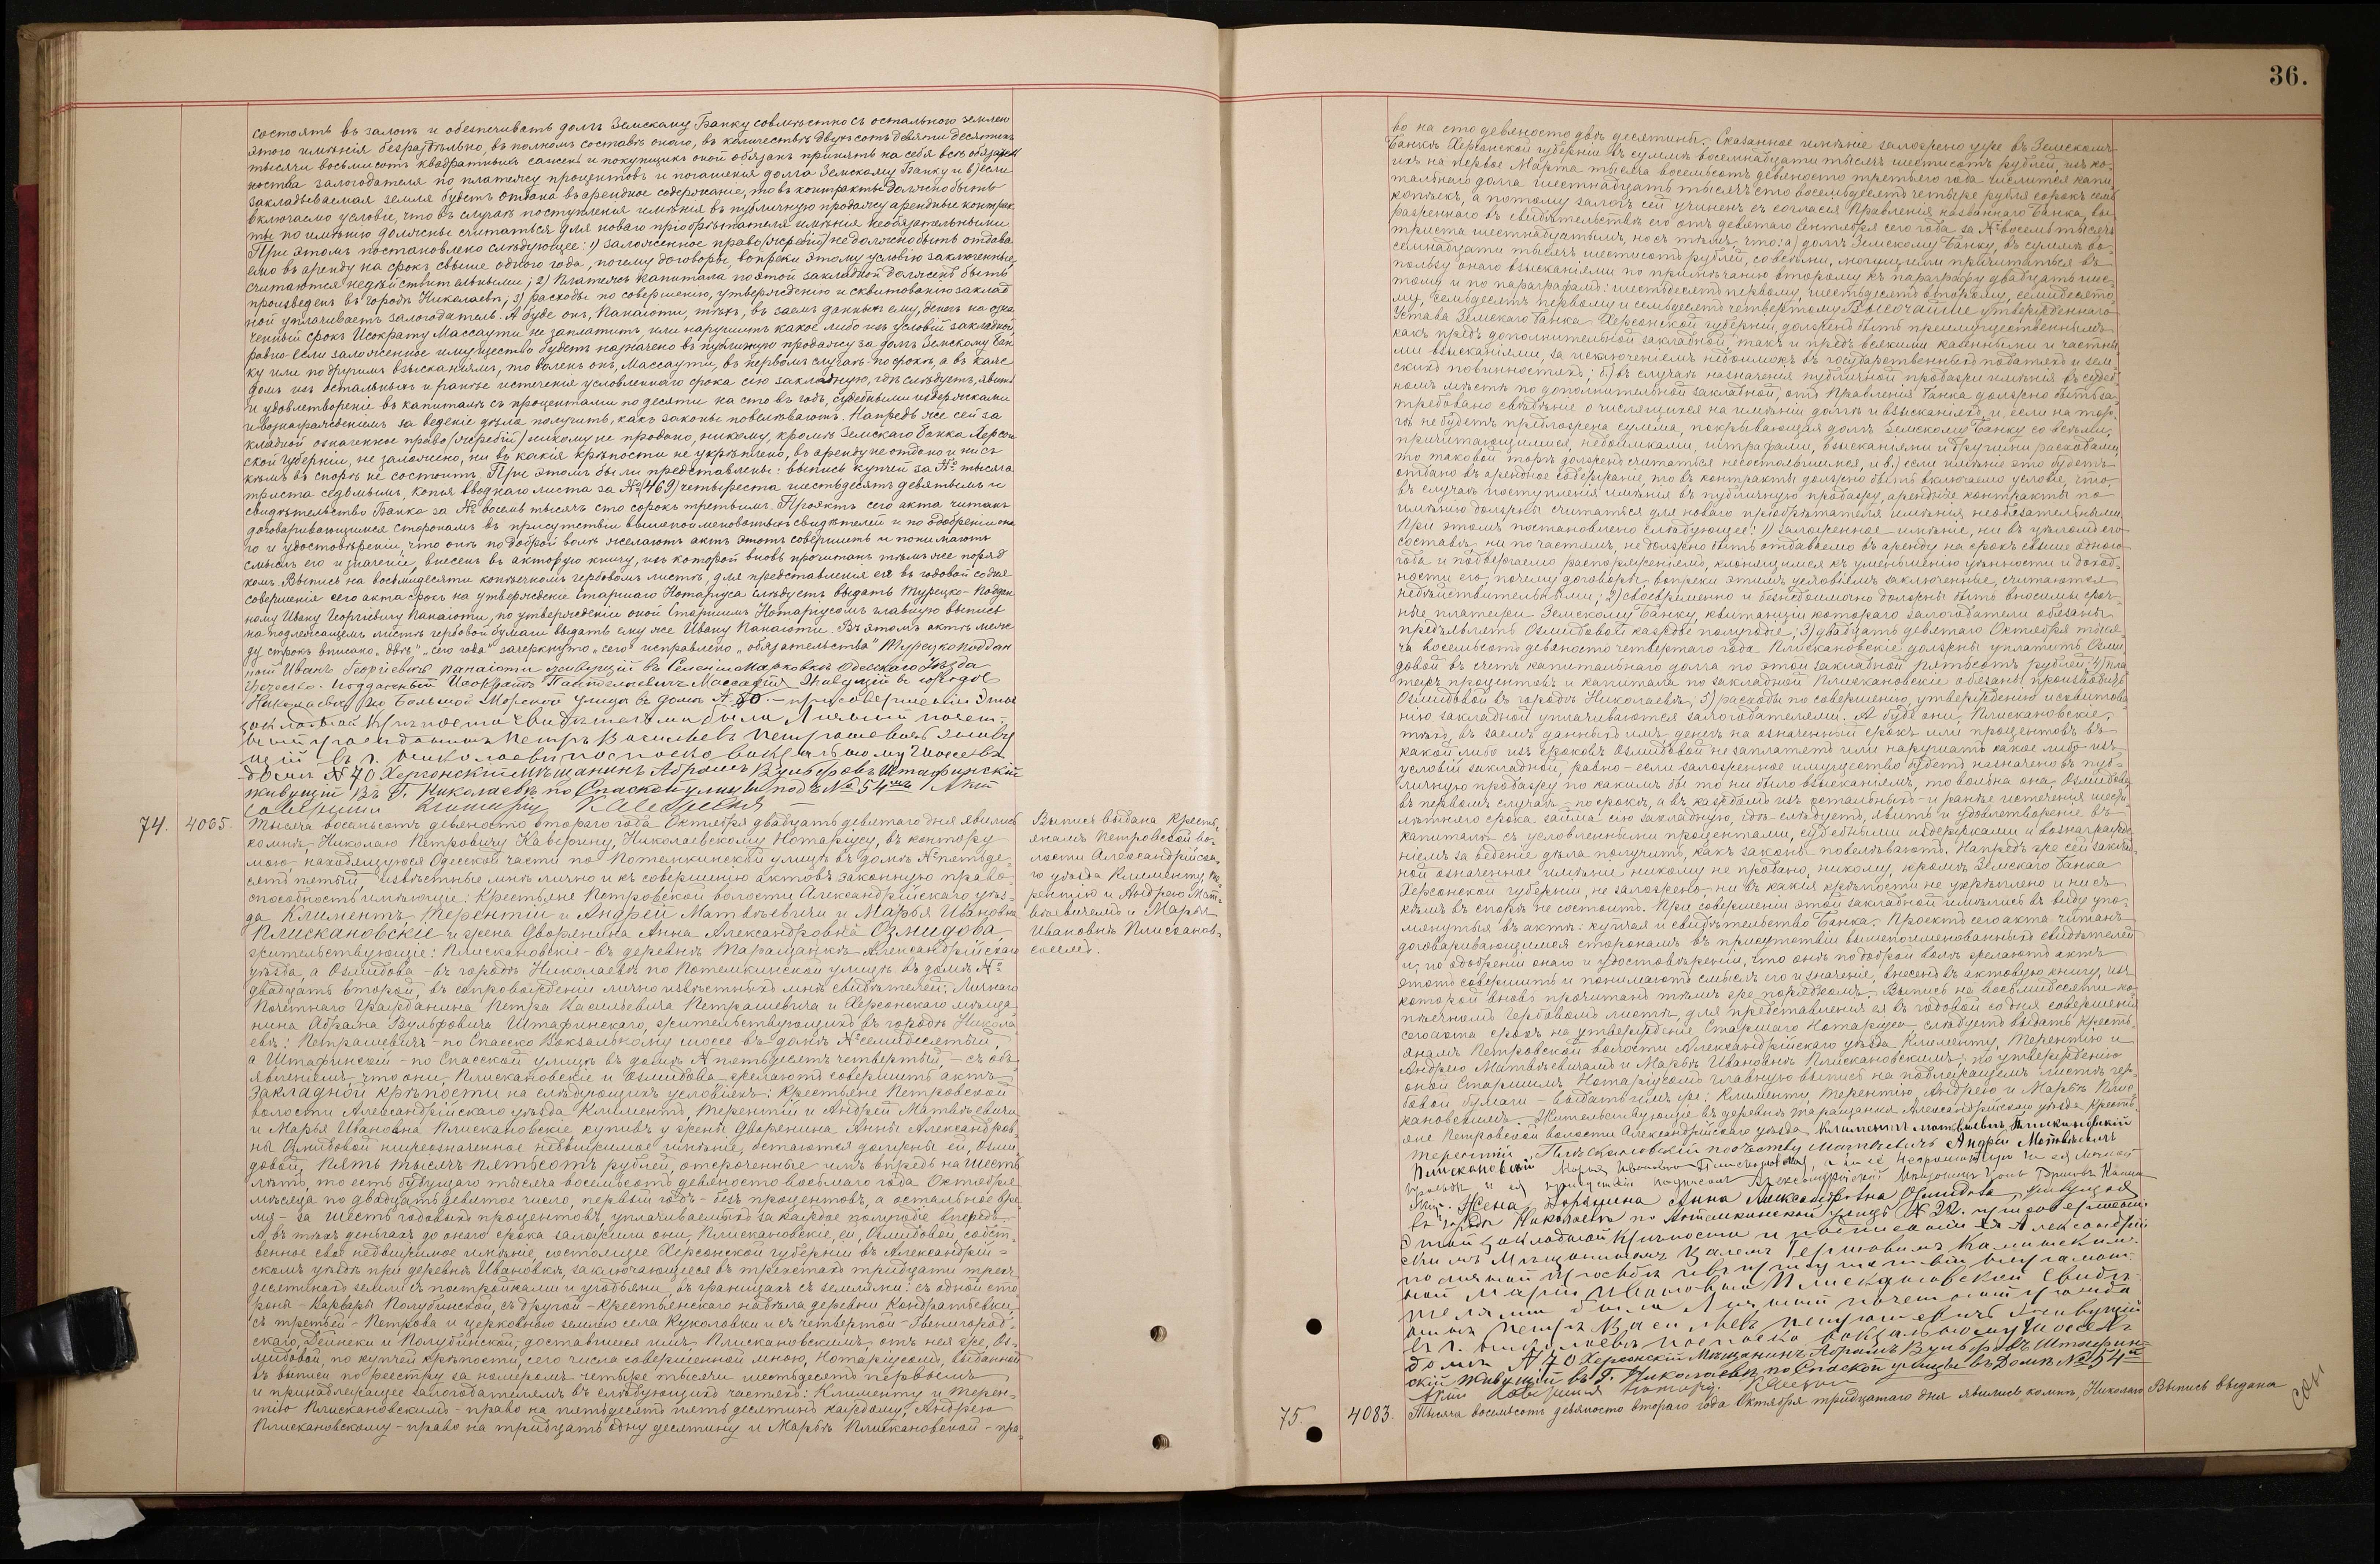 состоять въ залогѣ и обезпечивать долгъ Земскому Банку совмѣстно съ остальною землею
этого имѣнія безраздѣльно, въ полномъ составѣ онаго, въ количествѣ двухсотъ девяти десятинъ
тысячи восьмисотъ квадратныхъ сажень и покупщикъ оной обязанъ принять на себя всѣ обязан
ности залогодателя по платежу процентовъ и погашенія долга Земскому Банку и в) если
закладываемая земля будетъ отдана въ арендное содержаніе, то въ контрактѣ должно быть
включаемо условіе, что въ случаѣ поступленія имѣнія въ публичную продажу арендные контрак
ты по имѣнію должны считаться для новаго пріобрѣтателя имѣнія необязательными
При этомъ постановлено слѣдующее: 1) заложенное право (жребій) не должно быть отдава
емо въ аренду на срокъ свыше одного года, почему договоры, вопреки этому условію заключенные,
считаются недѣйствительными; 2) платежъ капитала по этой закладной долженъ быть
произведенъ въ городѣ Николаевѣ; 3) расходы по совершенію, утвержденію и сквитованію заклад
ной уплачиваетъ залогодатель. А буде онъ, Панаіоти, тѣхъ, въ заемъ данныхъ ему, денегъ на озна
ченный срокъ Исократу Массаути не заплатитъ или нарушитъ какое либо изъ условій закладной,
равно если заложенное имущество будетъ назначено въ публичную продажу за долгъ Земскому Бан
ку или по другимъ взысканіямъ, то воленъ онъ, Массаути, въ первомъ случаѣ по срокѣ, а въ каж
домъ изъ остальныхъ и ранѣе истеченія условленнаго срока сію закладную, гдѣ слѣдуетъ, явить
и удовлетвореніе въ капиталѣ съ процентами по десяти на сто въ годъ, судебными издержками
и вознагражденіемъ за веденіе дѣла получить, какъ законы повелѣваютъ. Напредь же сей за
кладной означенное право (жребій) никому не продано, никому, кромѣ Земскаго Банка Херсон
ской Губерніи, не заложено, ни въ какія крѣпости не укрѣплено, въ аренду не отдано и ни съ
кѣмъ въ спорѣ не состоитъ. При этомъ были представлены: выпись купчей за № тысяча
триста седьмымъ, копія вводнаго листа за № (469) четыреста шестьдесятъ девятымъ и
свидѣтельство Банка за № восемь тысячъ сто сорокъ третьимъ. Проэктъ сего акта читанъ
договаривающимся сторонамъ въ присутствіи вышепоименованныхъ свидѣтелей и по одобреніи она
го и удостовѣреніи, что онѣ по доброй волѣ желаютъ актъ этотъ совершить и понимаютъ
смыслъ его и значеніе, внесенъ въ актовую книгу, изъ которой вновь прочитанъ тѣмъ же поряд
комъ. Выпись на восьмидесяти копѣечномъ гербовомъ листѣ, для представленія ея въ годовой со дня
совершенія сего акта срокъ на утвержденіе Старшаго Нотаріуса слѣдуетъ выдать Турецко-Поддан
ному Ивану Георгіевичу Панаіоти, по утвержденіи оной Старшимъ Нотаріусомъ главную выпись
на подлежащемъ листѣ гербовой бумаги выдать ему же Ивану Панаіоти. Въ этомъ актѣ меж
ду строкъ вписано „двѣ“ „сего года“ зачеркнуто „сего“ исправлено „обязательства“ Турецкоподдан
ный Иванъ Георгіевичъ Панаіоти живущій въ Селеніи Марковкѣ Одесскаго Уѣзда
Греческо-подданный Исократъ Пантелеевичъ Массаути Живущій въ городѣ
Николаевѣ, по Большой Морской улицѣ въ домѣ № 80. – при совершеніи этой
закладной крѣпости свидѣтелями были Личный почет-
ный гражданинъ Петръ Васильевъ Петрашевичъ живу
щій въ г. Николаевѣ по спаско вокзальному шоссе въ
домѣ № 70 Херсонскій мѣщанинъ Абрамъ Вульфовъ Штафинскій
живущій въ Г. Николаевѣ по Спаской улицѣ подъ № 54мъ Актъ
совершилъ Нотаріусъ Каверинъ
74. 4065. Тысяча восемьсотъ девяносто втораго года Октября двадцать девятаго дня явились
ко мнѣ, Николаю Петровичу Каверину, Николаевскому Нотаріусу, въ контору
мою, находящуюся Одесской части по Потемкинской улицѣ въ домѣ № пятьде-
сятъ пятый, извѣстные мнѣ лично и къ совершенію актовъ законную право-
способность имѣющіе: Крестьяне Петровской волости Александрійскаго уѣз-
да Климентъ, Терентій и Андрей Матвѣевичи и Марья Ивановна
Плискановскіе и жена Дворянина Анна Александровна Озмидова,
жительствующіе: Плискановскіе – въ деревнѣ Таращанкѣ Александрійскаго
уѣзда, а Озмидова – въ городѣ Николаевѣ по Потемкинской улицѣ въ домѣ №
двадцать второй, въ сопровожденіи лично извѣстныхъ мнѣ свидѣтелей: Личнаго
Почетнаго Гражданина Петра Васильевича Петрашевича и Херсонскаго мѣща-
нина Абрама Вульфовича Штафинскаго, жительствующихъ въ городѣ Никола-
евѣ: Петрашевичъ – по Спасско Вокзальному шоссе въ домѣ № семидесятый,
а Штафинскій – по Спасской улицѣ въ домѣ № пятьдесятъ четвертый, – съ объ-
явленіемъ, что они, Плискановскіе и Озмидова желаютъ совершить актъ
Закладной крѣпости на слѣдующихъ условіяхъ: Крестьяне Петровской
волости Александрійскаго уѣзда Климентъ, Терентій и Андрей Матвѣевичи
и Марья Ивановна Плискановскіе купивъ у жены Дворянина Анны Александров
ны Озмидовой нижеозначенное недвижимое имѣніе, остаются должны ей, Озми-
довой, пять тысячъ пятьсотъ рублей, отсроченные имъ впредь на шесть
лѣтъ, то есть будущаго тысяча восемьсотъ девяносто восьмаго года Октября
мѣсяца по двадцать девятое число, первый годъ – безъ процентовъ, а остальное вре
мя – за шесть годовыхъ процентовъ, уплачиваемыхъ за каждое полугодіе впередъ.
А въ тѣхъ деньгахъ до онаго срока заложили они, Плискановскіе, ей, Озмидовой, собст-
венное свое недвижимое имѣніе, состоящее Херсонской губерніи въ Александрій-
скомъ уѣздѣ при деревнѣ Ивановкѣ, заключающееся въ трехстахъ тридцати трехъ
десятинахъ земли съ постройками и угодьями, въ границахъ съ землями: съ одной сто
роны – Варвары Полубинской, съ другой – Крестьянскаго надѣла деревни Кондратьевки,
съ третьей – Петрова и церковною землею села Куколовки и съ четвертой – Звенигород-
скаго, Дейнеки и Полубинской; доставшееся имъ, Плискановскимъ, отъ нея же, Оз-
мидовой, по купчей крѣпости, сего числа совершенной мною, Нотаріусомъ, выданной
въ выписи по реестру за номеромъ четыре тысячи шестьдесятъ первымъ
и принадлежащее залогодателямъ въ слѣдующихъ частяхъ: Клименту и Терен-
тію Плискановскимъ – право на пятьдесятъ пять десятинъ каждому, Андрею
Плискановскому – право на тридцать одну десятину и Марьѣ Плискановской – пра-
Выпись выдана Кресть-
янамъ Петровской во-
лости Александрійска-
го уѣзда Клименту, Те-
рентію и Андрею Мат-
вѣевичамъ и Марьѣ
Ивановнѣ Плисканов-
скимъ.
36.
во на сто девяносто двѣ десятины. Сказанное имѣніе заложено уже въ Земскомъ
Банкѣ Херсонской губерніи въ суммѣ восемнадцати тысячъ шестисотъ рублей, изъ ко-
ихъ на первое Марта тысяча восемьсотъ девяносто третьяго года числится капи
тальнаго долга шестнадцать тысячъ сто восемьдесятъ четыре рубля сорокъ семь
копѣекъ, а потому залогъ сей учиненъ съ согласія Правленія названнаго Банка, вы-
раженнаго въ свидѣтельствѣ его отъ девятаго Сентября сего года за № восемь тысячъ
триста шестнадцатымъ, но съ тѣмъ, что: а) долгъ Земскому Банку, въ суммѣ во-
семнадцати тысячъ шестисотъ рублей, со всѣми, могущими причитаться въ
пользу онаго взысканіями по примѣчанію второму къ параграфу двадцать шес-
тому и по параграфамъ: шестьдесятъ первому, шестьдесятъ второму, семидесято-
му, семьдесятъ первому и семьдесятъ четвертому Высочайше утвержденнаго
Устава Земскаго Банка Херсонской губерніи, долженъ быть преимущественнымъ
какъ предъ дополнительной закладной, такъ и предъ всякими казенными и частны-
ми взысканіями, за исключеніемъ недоимокъ въ государственныхъ податяхъ и зем
скихъ повинностяхъ; б) въ случаѣ назначенія публичной продажи имѣнія въ судеб-
номъ мѣстѣ по дополнительной закладной, отъ Правленія Банка должно быть за-
требовано свѣдѣніе о числящихся на имѣніи долгѣ и взысканіяхъ, и, если на тор-
гѣ не будетъ предложена сумма, покрывающая долгъ Земскому Банку со всѣми,
причитающимися, недоимками, штрафами, взысканіями и другими расходами,
то таковой торгъ долженъ считаться несостоявшимся, и в) если имѣніе это будетъ
отдано въ арендное содержаніе, то въ контракты должно быть включаемо условіе, что
въ случаѣ поступленія имѣнія въ публичную продажу, арендные контракты по
имѣнію должны считаться для новаго пріобрѣтателя имѣнія необязательными.
При этомъ постановлено слѣдующее: 1) заложенное имѣніе, ни въ цѣломъ его
составѣ, ни по частямъ, не должно быть отдаваемо въ аренду на срокъ свыше одного
года и подвергаемо распоряженіямъ, клонящимся къ уменьшенію цѣнности и доход-
ности его, почему договоры, вопреки этимъ условіямъ заключенные, считаются
недѣйствительными; 2) своевременно и безнедоимочно должны быть вносимы сроч-
ные платежи Земскому Банку, квитанціи котораго залогодатели обязаны
предъявлять Озмидовой каждое полугодіе; 3) двадцать девятаго Октября тыся-
ча восемьсотъ девяносто четвертаго года Плискановскіе должны уплатить Озми
довой въ счетъ капитальнаго долга по этой закладной пятьсотъ рублей; 4) пла
тежъ процентовъ и капитала по закладной Плискановскіе обязаны производить
Озмидовой въ городѣ Николаевѣ; 5) расходы по совершенію, утвержденію и сквитова
нію закладной уплачиваются залогодателями. А буде они, Плискановскіе,
тѣхъ, въ заемъ данныхъ имъ денегъ на означенный срокъ или процентовъ въ
какой либо изъ сроковъ Озмидовой не заплатятъ или нарушатъ какое либо изъ
условій закладной, равно – если заложенное имущество будетъ назначено въ пуб-
личную продажу по какимъ бы то ни было взысканіямъ, то вольна она, Озмидова
въ первомъ случаѣ – по срокѣ, а въ каждомъ изъ остальныхъ и ранѣе истеченія шести-
лѣтняго срока займа сію закладную, гдѣ слѣдуетъ, явить и удовлетвореніе въ
капиталѣ съ условленными процентами, судебными издержками и вознагражде
ніемъ за веденіе дѣла получить, какъ законы повелѣваютъ. Напредь же сей заклад-
ной означенное имѣніе никому не продано, никому, кромѣ Земскаго Банка
Херсонской губерніи, не заложено, ни въ какія крѣпости не укрѣплено и ни съ
кѣмъ въ спорѣ не состоитъ. При совершеніи этой закладной имѣлись въ виду упо-
мянутыя въ актѣ: купчая и свидѣтельство Банка. Проектъ сего акта читанъ
договаривающимся сторонамъ въ присутствіи вышепоименованныхъ свидѣтелей
и, по одобреніи онаго и удостовѣреніи, что онѣ по доброй волѣ желаютъ актъ
этотъ совершить и понимаютъ смыслъ его и значеніе, внесенъ въ актовую книгу, изъ
которой вновь прочитанъ тѣмъ же порядкомъ. Выпись на восьмидесяти ко-
пѣечномъ гербовомъ листѣ, для представленія ея въ годовой со дня совершенія
сего акта срокъ на утвержденіе Старшаго Нотаріуса слѣдуетъ выдать Кресть-
янамъ Петровской волости Александрійскаго уѣзда Клименту, Терентію и
Андрею Матвѣевичамъ и Марьѣ Ивановнѣ Плискановскимъ; по утвержденію
оной Старшимъ Нотаріусомъ главную выпись на подлежащемъ листѣ гер-
бовой бумаги – выдать имъ же: Клименту, Терентію, Андрею и Марьѣ Плис-
кановскимъ. Жительствующіе въ деревнѣ Таращанкѣ Александрійскаго уѣзда Кресть-
яне Петровской волости Александрійскаго уѣзда Климентъ Матвѣевичъ Плискановскій
Терентій Плискановскій Матвѣевичъ Андрей Матвѣевичъ
Плискановскій Марья Ивановна Плискановская, а за нея неграмотную по ея личной
просьбѣ и въ ея присутствіи подписался Александрійскій Мѣщанинъ
Жена Дворянина Анна Александровна Озмидова, живущая
въ городѣ Николаевѣ по Потемкинской улицѣ № 22. при совершеніи
этой закладной крѣпости и подписаніи ея Александрій
скимъ Мѣщаниномъ
по личной просьбѣ и въ присутствіи неграмот-
ной Марьи Ивановны Плискановской свидѣ-
телями были Личный почетный гражда
нинъ Петръ Васильевъ Петрашевичъ живущій
въ г. Николаевѣ по спаско вокзальному шоссе въ
домѣ № 70 Херсонскій Мѣщанинъ Абрамъ Вульфовъ Штафин-
скій живущій въ Г. Николаевѣ по Спаской улицѣ въ Домѣ № 54мъ
Актъ совершилъ Нотаріусъ Каверинъ
75. 4083. Тысяча восемьсотъ девяносто втораго года Октября тридцатаго дня явились ко мнѣ, Николаю
Выпись выдана